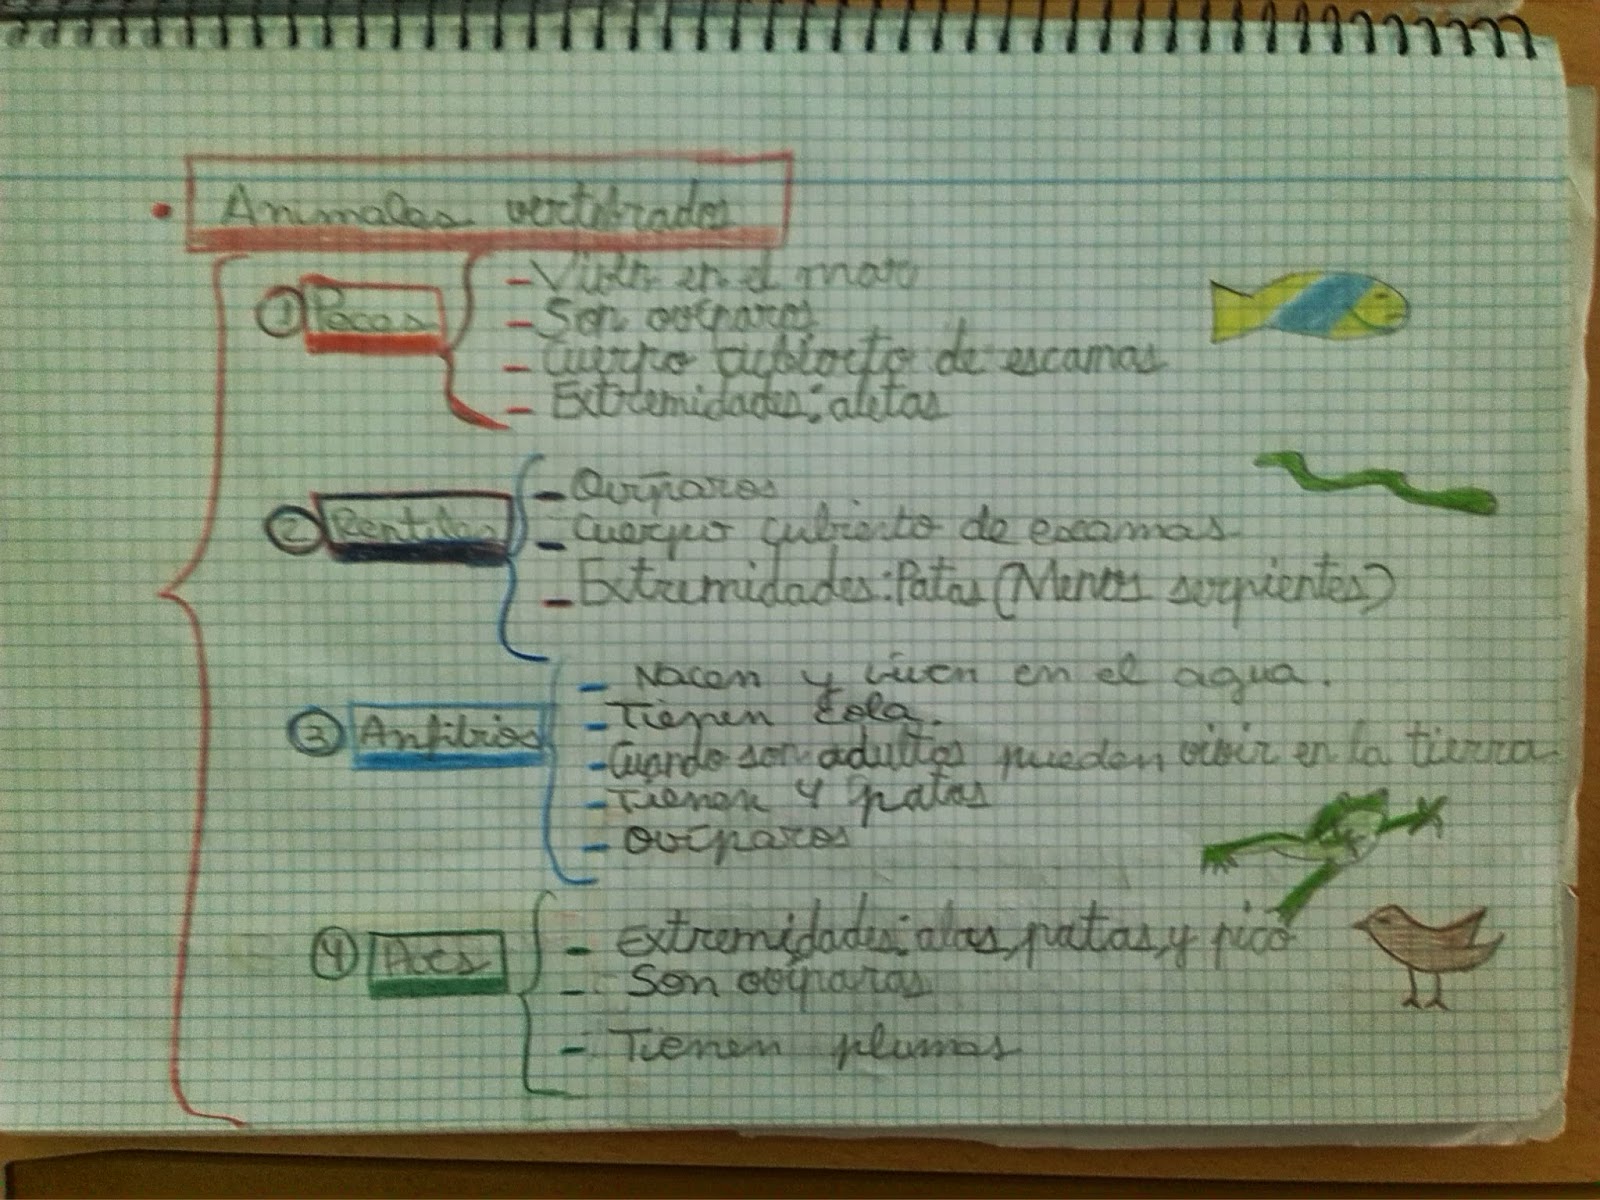 Animales vertebrados
1 Peces
- Viven en el mar
- Son ovíparos
- Cuerpo cubierto de escamas
- Extremidades: aletas
2 Reptiles
- Ovíparos
- Cuerpo cubierto de escamas
- Extremidades: Patas (Menos serpientes)
3 Anfibios
- Nacen y viven en el agua.
- Tienen cola.
- Cuando son adultos pueden vivir en la tierra
- Tienen 4 patas
- Ovíparos
4 Aves
- Extremidades: alas, patas, y pico
- Son ovíparas
- Tienen plumas